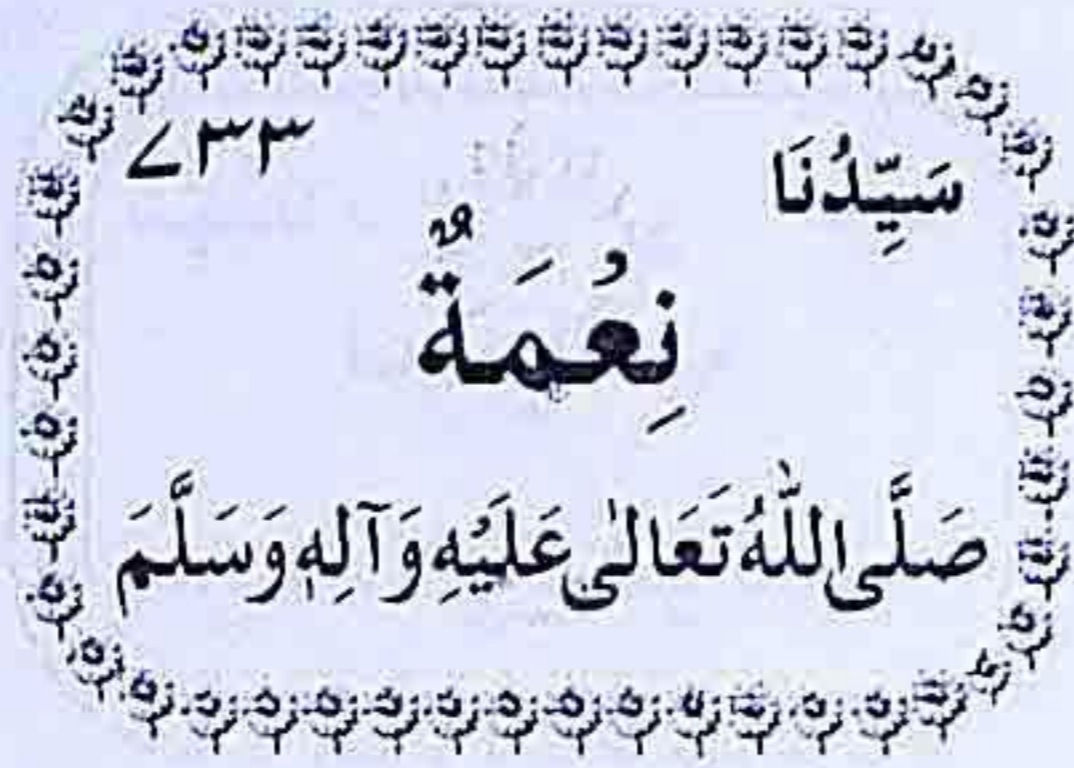 سَيِّدُنَا ۷۳۳
نِعْمَةٌ
صَلَّى اللّٰهُ تَعَالٰى عَلَيْهِ وَآلِهٖ وَسَلَّمَ